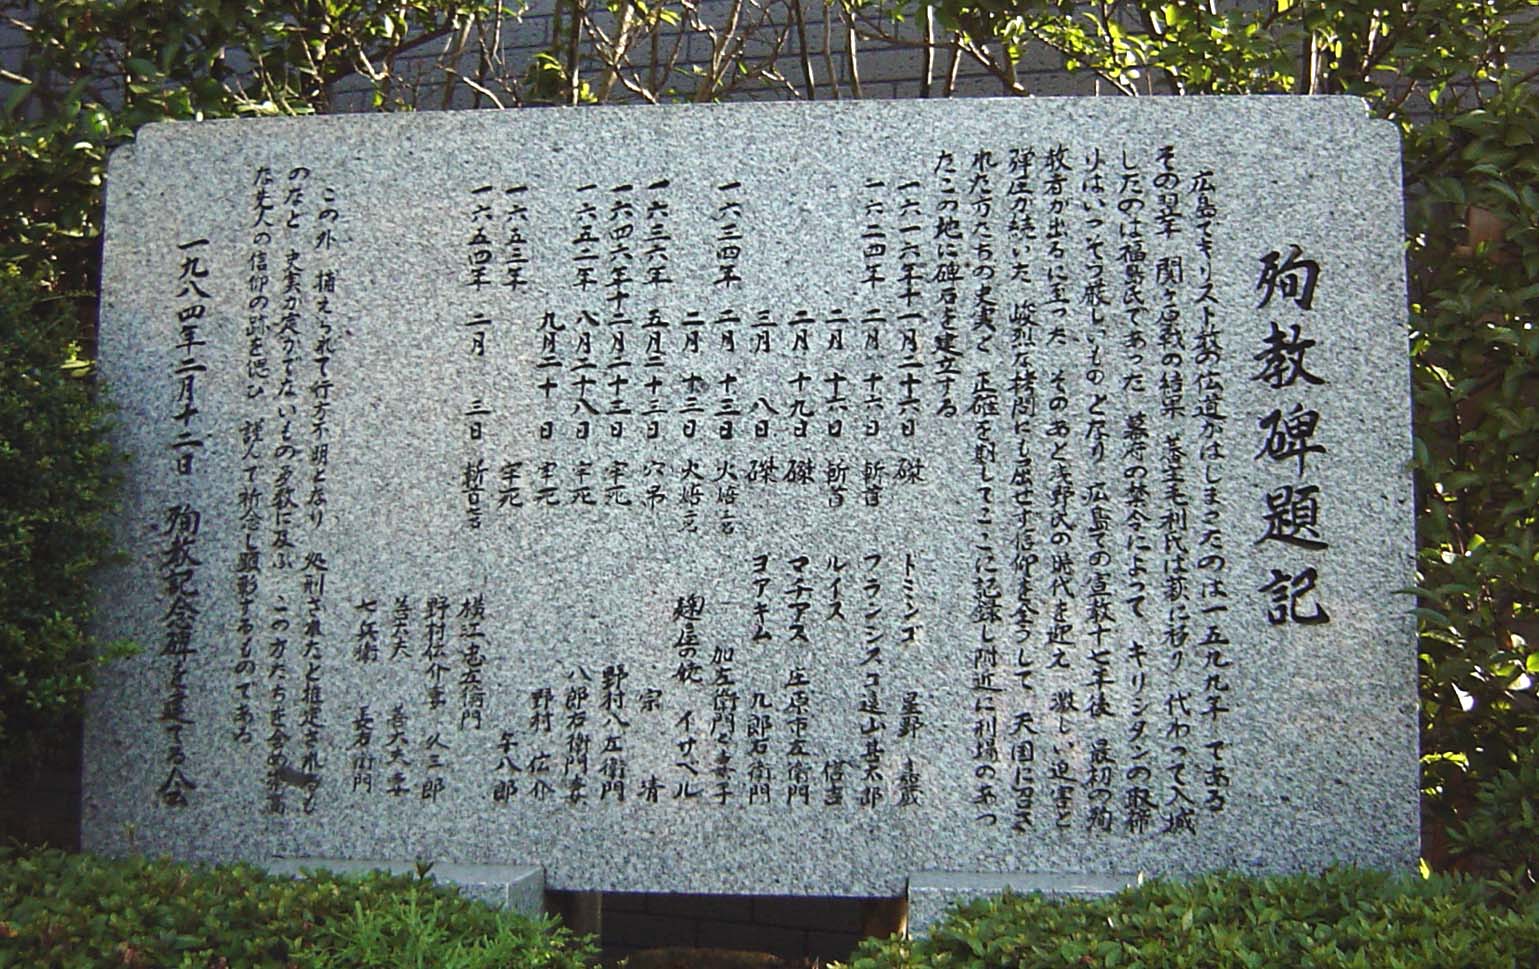 殉教碑題記
広島でキリスト教の伝道がはじまったのは一五九九年である
その翌年 関ヶ原戦の結果 藩主毛利氏は萩に移り 代わって入城
したのは福島氏であった 幕府の禁令によって キリシタンの取締
りはいっそう厳しいものとなり 広島での宣教十七年後 最初の殉
教者が出るに至った そのあと浅野氏の時代を迎え 激しい迫害と
弾圧が続いた 峻烈な拷問にも屈せず信仰を全うして 天国に召さ
れた方たちの史実を 正確を期してここに記録し附近に刑場のあっ
たこの地に碑石を建立する
一六一六年十一月二十六日 磔 トミンゴ 星野 蔵
一六二四年 二月 十六日 斬首 フランシスコ遠山甚太郎
二月 十六日 斬首 ルイス 信吉
二月 十九日 磔 マチアス 庄原市左衛門
三月 八日 磔 ヨアキム 九郎右衛門
一六三四年 二月 十三日 火焙 加左衛門と妻子
二月 十三日 火焙 麹屋の姥 イサベル
一六三六年 五月二十三日 穴吊 宗 清
一六四六年十二月二十三日 牢死 野村八左衛門
一六五二年 八月二十八日 牢死 八郎右衛門妻
九月二十日 牢死 野村 伝介
一六五三年 牢死 与八郎
一六五四年 二月 三日 斬首 横江忠左衛門
野村伝介妻 久三郎
善太夫 善太夫妻
七兵衛 長右衛門
この外 捕えられて行方不明となり 処刑されたと推定されるも
のなど 史実が定かでないもの多数に及ぶ この方たちを含め崇高
な先人の信仰の跡を偲び 謹んで祈念し顕彰するものである
一九八四年二月十二日 殉教記念碑を建てる会